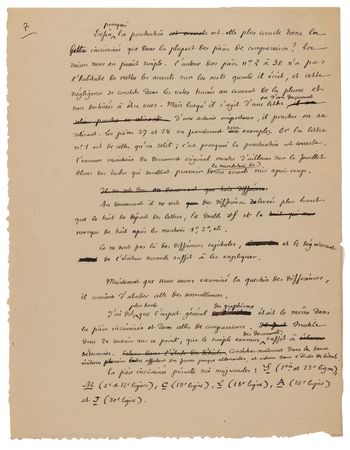 7.
pourquoi
Enfin, la ponctuation est elle plus correcte dans la
lettre incriminée que dans la plupart des pièces de comparaison ? La
raison nous en paraît simple. L'auteur des pièces nos 2 à 30 n'a pas
l'habitude de mettre les accents sur les mots quand il écrit, et cette
négligence se constate dans les notes tracées au courant de la plume et
non destinées à être vues. Mais lorsqu'il s'agit d'une lettre
ou d'un document
d'une certaine importance, il ponctue en se
relisant. Les pièces 27 et 28 en fournissent un exemple. Or la lettre
no 1 est de celles qu'on relit ; c'est pourquoi la ponctuation est correcte.
L'examen minutieux du document original montre d'ailleurs sur le feuillet
blanc des taches qui semblent provenir de accents mis après coup.
Au demeurant il ne reste que des différences relevées plus haut
que le trait de départ des lettres, la double ss et le
manque de trait après les numéros 1°, 2°, etc.
Ce ne sont pas là des différences capitales, et le déguisement
de l'écriture normale suffit à les expliquer.
Maintenant que nous avons examiné la question des différences,
il convient d'aborder celle des ressemblances.
plus haut du graphisme
J'ai dit que l'aspect général était le même dans
la pièce incriminée et dans celles de comparaison. Inutile
donc de revenir sur ce point, que le simple examen suffit à
des documents
La pièce incriminée présente six majuscules : S (1ère et 23e ligne),
M (2e et 12e lignes), C (15e ligne), L (18e ligne), A (26e ligne)
et J (30e ligne).